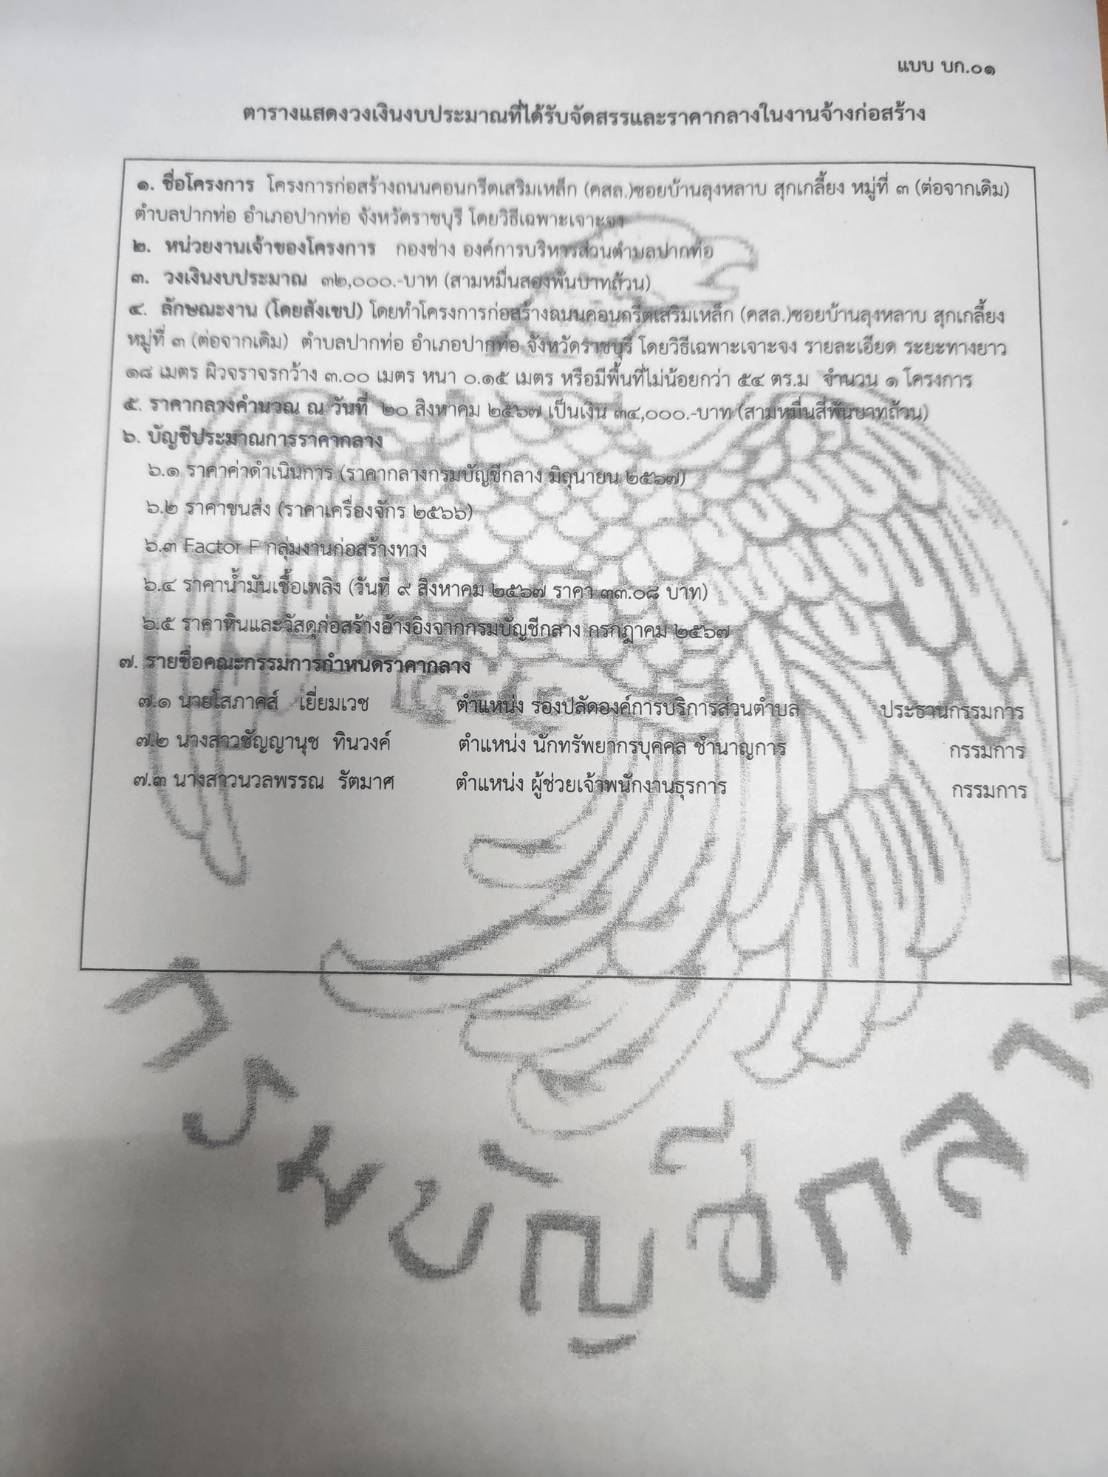 แบบ บก.๐๑
ตารางแสดงวงเงินงบประมาณที่ได้รับจัดสรรและราคากลางในงานจ้างก่อสร้าง
๑. ชื่อโครงการ โครงการก่อสร้างถนนคอนกรีตเสริมเหล็ก (คสล.)ซอยบ้านลุงหลาบ สุกเกลี้ยง หมู่ที่ ๓ (ต่อจากเดิม)
ตำบลปากท่อ อำเภอปากท่อ จังหวัดราชบุรี โดยวิธีเฉพาะเจาะจง
๒. หน่วยงานเจ้าของโครงการ กองช่าง องค์การบริหารส่วนตำบลปากท่อ
๓. วงเงินงบประมาณ ๓๒,๐๐๐.-บาท (สามหมื่นสองพันบาทถ้วน)
๔. ลักษณะงาน (โดยสังเขป) โดยทำโครงการก่อสร้างถนนคอนกรีตเสริมเหล็ก (คสล.)ซอยบ้านลุงหลาบ สุกเกลี้ยง
หมู่ที่ ๓ (ต่อจากเดิม) ตำบลปากท่อ อำเภอปากท่อ จังหวัดราชบุรี โดยวิธีเฉพาะเจาะจง รายละเอียด ระยะทางยาว
๑๘ เมตร ผิวจราจรกว้าง ๓.๐๐ เมตร หนา ๐.๑๕ เมตร หรือมีพื้นที่ไม่น้อยกว่า ๕๔ ตร.ม จำนวน ๑ โครงการ
๕. ราคากลางคำนวณ ณ วันที่ ๒๐ สิงหาคม ๒๕๖๗ เป็นเงิน ๓๔,๐๐๐.-บาท (สามหมื่นสี่พันบาทถ้วน)
๖. บัญชีประมาณการราคากลาง
๖.๑ ราคาค่าดำเนินการ (ราคากลางกรมบัญชีกลาง มิถุนายน ๒๕๖๗)
๖.๒ ราคาขนส่ง (ราคาเครื่องจักร ๒๕๖๖)
๖.๓ Factor F กลุ่มงานก่อสร้างทาง
๖.๔ ราคาน้ำมันเชื้อเพลิง (วันที่ ๙ สิงหาคม ๒๕๖๗ ราคา ๓๓.๐๘ บาท)
๖.๕ ราคาหินและวัสดุก่อสร้างอ้างอิงจากกรมบัญชีกลาง กรกฎาคม ๒๕๖๗
๗. รายชื่อคณะกรรมการกำหนดราคากลาง
๗.๑ นายโสภาคส์ เยี่ยมเวช ตำแหน่ง รองปลัดองค์การบริการส่วนตำบล ประธานกรรมการ
๗.๒ นางสาวชัญญานุช ทินวงค์ ตำแหน่ง นักทรัพยากรบุคคล ชำนาญการ กรรมการ
๗.๓ นางสาวนวลพรรณ รัตมาศ ตำแหน่ง ผู้ช่วยเจ้าพนักงานธุรการ กรรมการ
กรมบัญชีกลาง